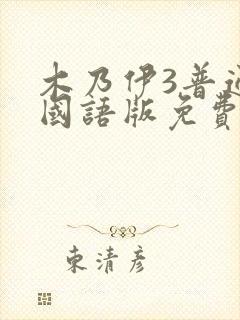 木乃伊3普通
國語版免費
東清彥